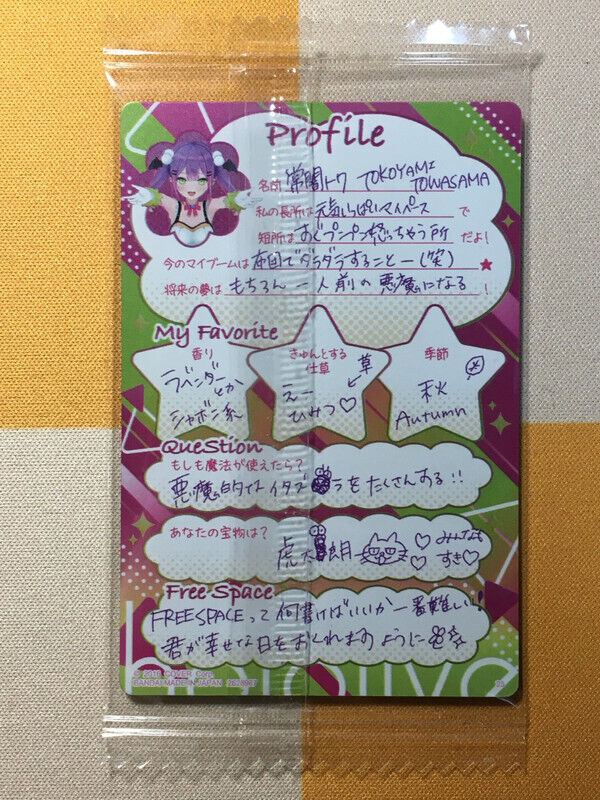 Profile
名前 常闇トワ TOKOYAMI TOWASAMA
私の長所は 元気いっぱいマイペース で
短所は すぐプンプン怒っちゃう所 だよ!
今のマイブームは 布団でダラダラすることー(笑)
将来の夢は もちろん 一人前の悪魔になる !
My Favorite
香り
ラベンダー
とか
シャボン系
きゅんとする
仕草
草
えー
ひみつ♡
季節
秋
Autumn
QueStion
もしも魔法が使えたら?
悪魔的な イタズラを たくさんする!!
あなたの宝物は?
虎太郎 朗 みんなも
すき♡
Free Space
FREESPACEって何書けばいいか一番難しい!
君が幸せな日をおくれますように
© 2016 COVER Corp.
BANDAI MADE IN JAPAN
hololive